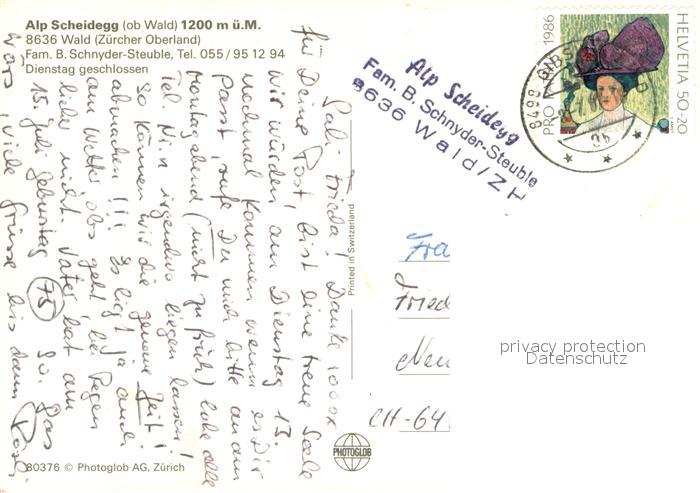 Alp Scheidegg (ob Wald) 1200 m ü.M.
8636 Wald (Zürcher Oberland)
Fam. B. Schnyder-Steuble, Tel. 055/95 12 94
Dienstag geschlossen
Sali Frieda! Danke 1000x
für Deine Post, bist eine treue Seele
wir würden am Dienstag 13.
nochmal kommen wenn es Dir
passt, rufe Du mich bitte an am
Montagabend (nicht zu früh) habe alle
Tel Nr. irgendwo liegen lassen!
So können wir die genaue Zeit
abmachen!!! Es liegt ja auch
am Wetter obs geht, bei Regen
lieber nicht. Vater hat am
15. Juli Geburtstag (75) So das
wärs, viele Grüsse bis dann
80376 © Photoglob AG, Zürich
Printed in Switzerland
PHOTOGLOB
Alp Scheidegg
Fam. B. Schnyder-Steuble
8636 Wald/ZH
PRO PATRIA 1986
HELVETIA 50+20
8498 GIBSWIL
Fra
Fried
Neu
CH-64
privacy protection
Datenschutz